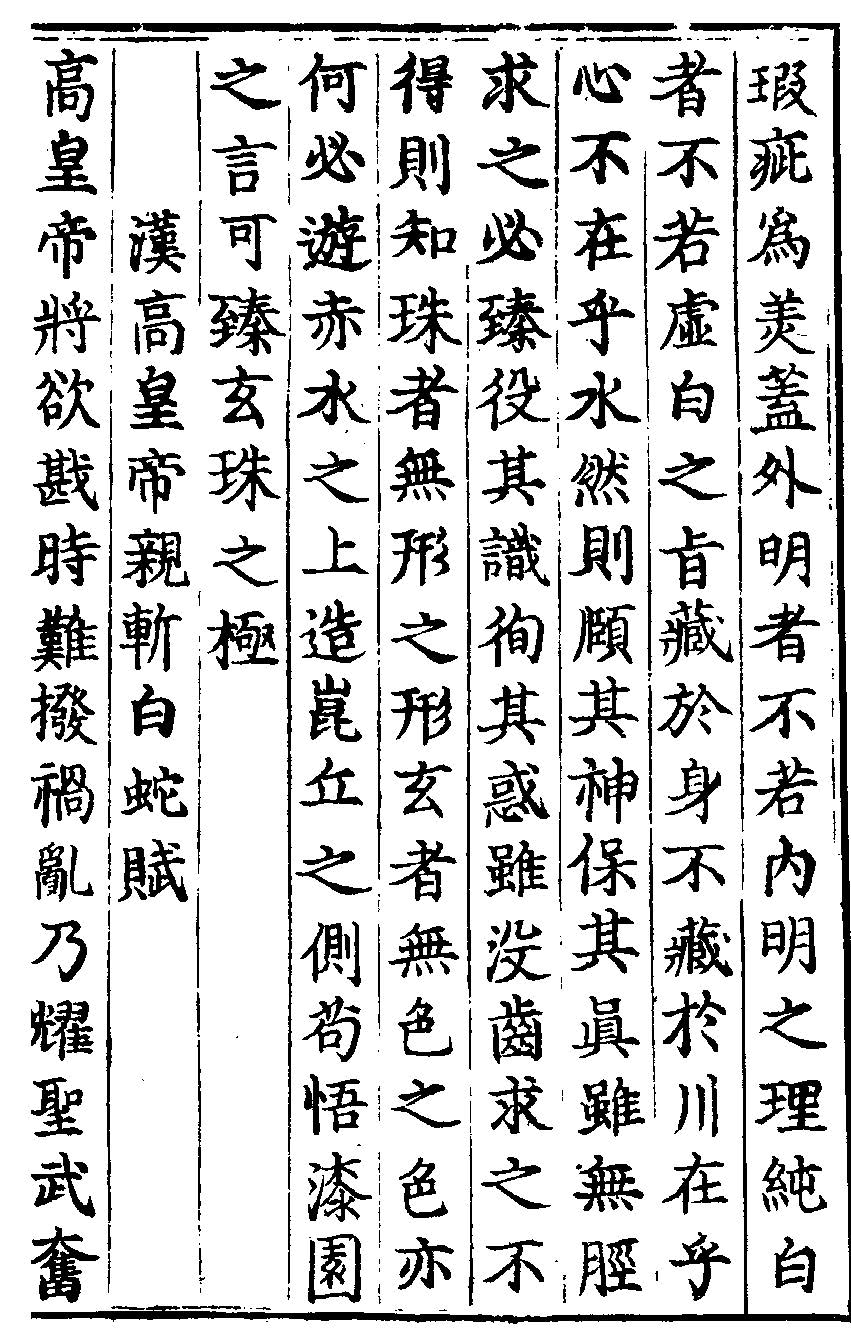 瑕疵爲羙蓋外明者不若内明之理純白
者不若虛白之㫖藏於身不藏於川在乎
心不在乎水然則頤其神保其眞雖無脛
求之必臻役其識徇其惑雖沒齒求之不
得則知珠者無形之形玄者無色之色亦
何必遊赤水之上造崑丘之側茍悟漆園
之言可臻玄珠之極
漢高皇帝親斬白蛇賦
高皇帝將欲戡時難撥禍亂乃耀聖武奮